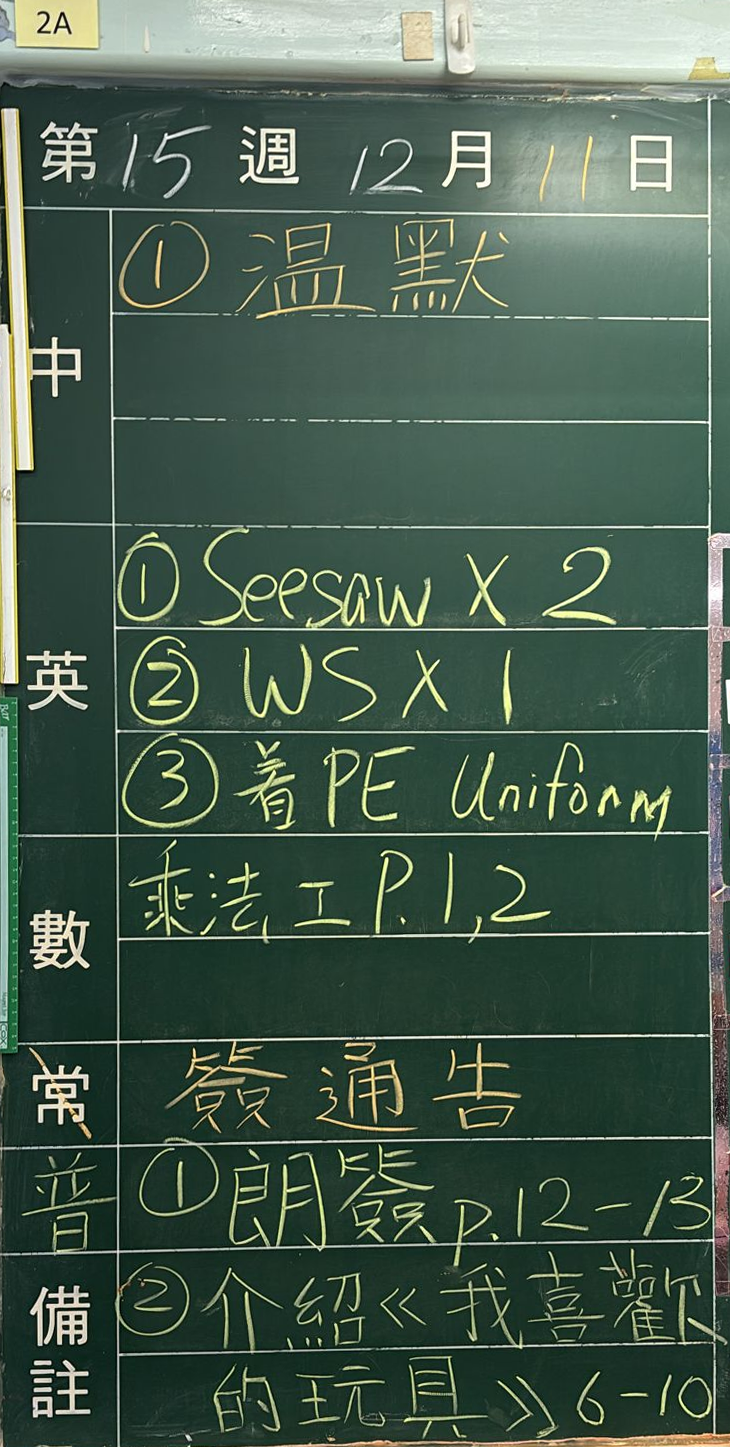 2A
第15週 12月11日
中
① 温默
英
① Seesaw X 2
② WS X 1
③ 着PE Uniform
數
乘法工P.1,2
常
簽通告
普
① 朗簽 p.12-13
備註
② 介紹《我喜歡
的玩具》6-10